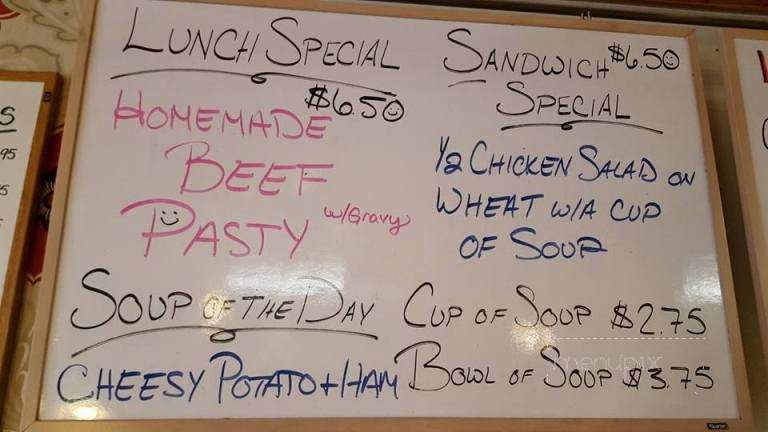 LUNCH SPECIAL
$6.50
HOMEMADE
BEEF
PASTY w/Gravy
SANDWICH $6.50
SPECIAL
1/2 CHICKEN SALAD ON
WHEAT W/A CUP
OF SOUP
SOUP OF THE DAY
CHEESY POTATO + HAM
CUP OF SOUP $2.75
BOWL OF SOUP $3.75
menupix
S
95